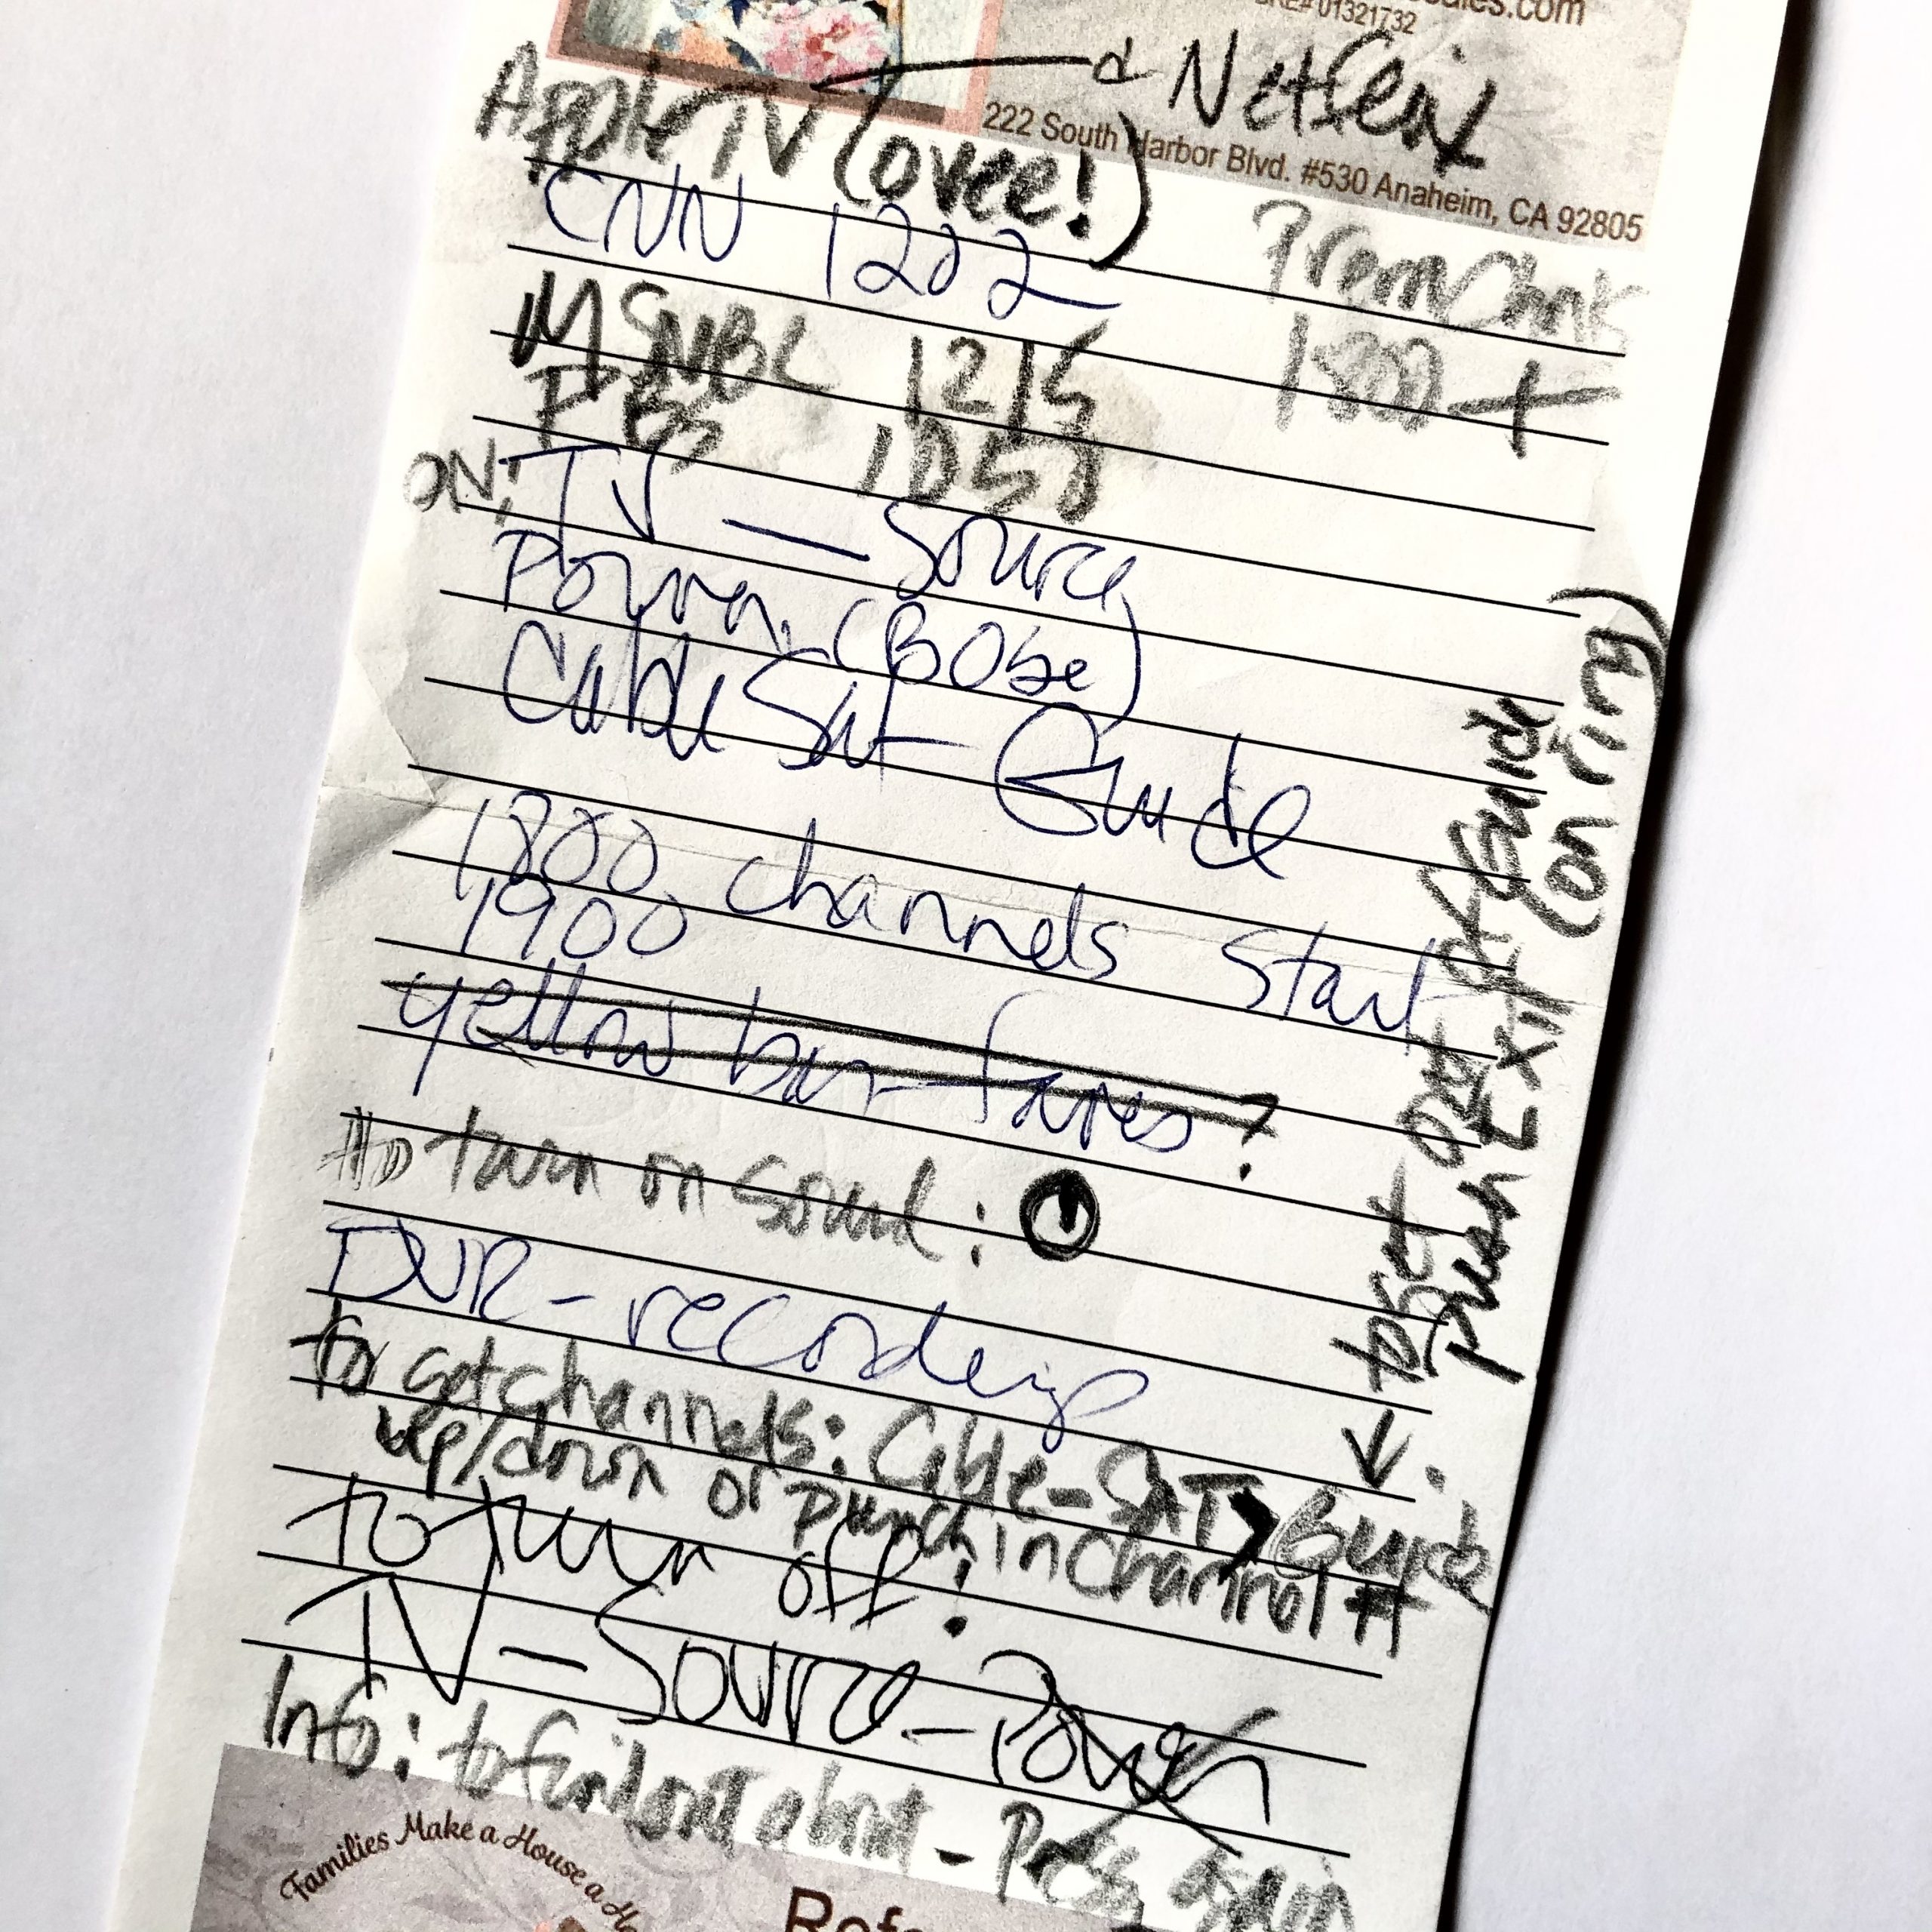 DRE# 01321732
Netflix
222 South Harbor Blvd. #530 Anaheim, CA 92805
Apple TV (over!)
CNN 1202
Prem Chnls
1800 +
MSNBC 1215
PBS
ON: TV — Source
Power (Bose)
Cable Sat — Guide
1800 channels start
1900
yellow bar — faves?
to turn on sound:
DVR - recordings
to get out of Guide
push EXIT (on rim)
for get channels: Cable-SAT > Guide
up/down or punch in channel #
to turn off:
TV — Source — Power
Info: to find out about - Press again
Families Make a House a